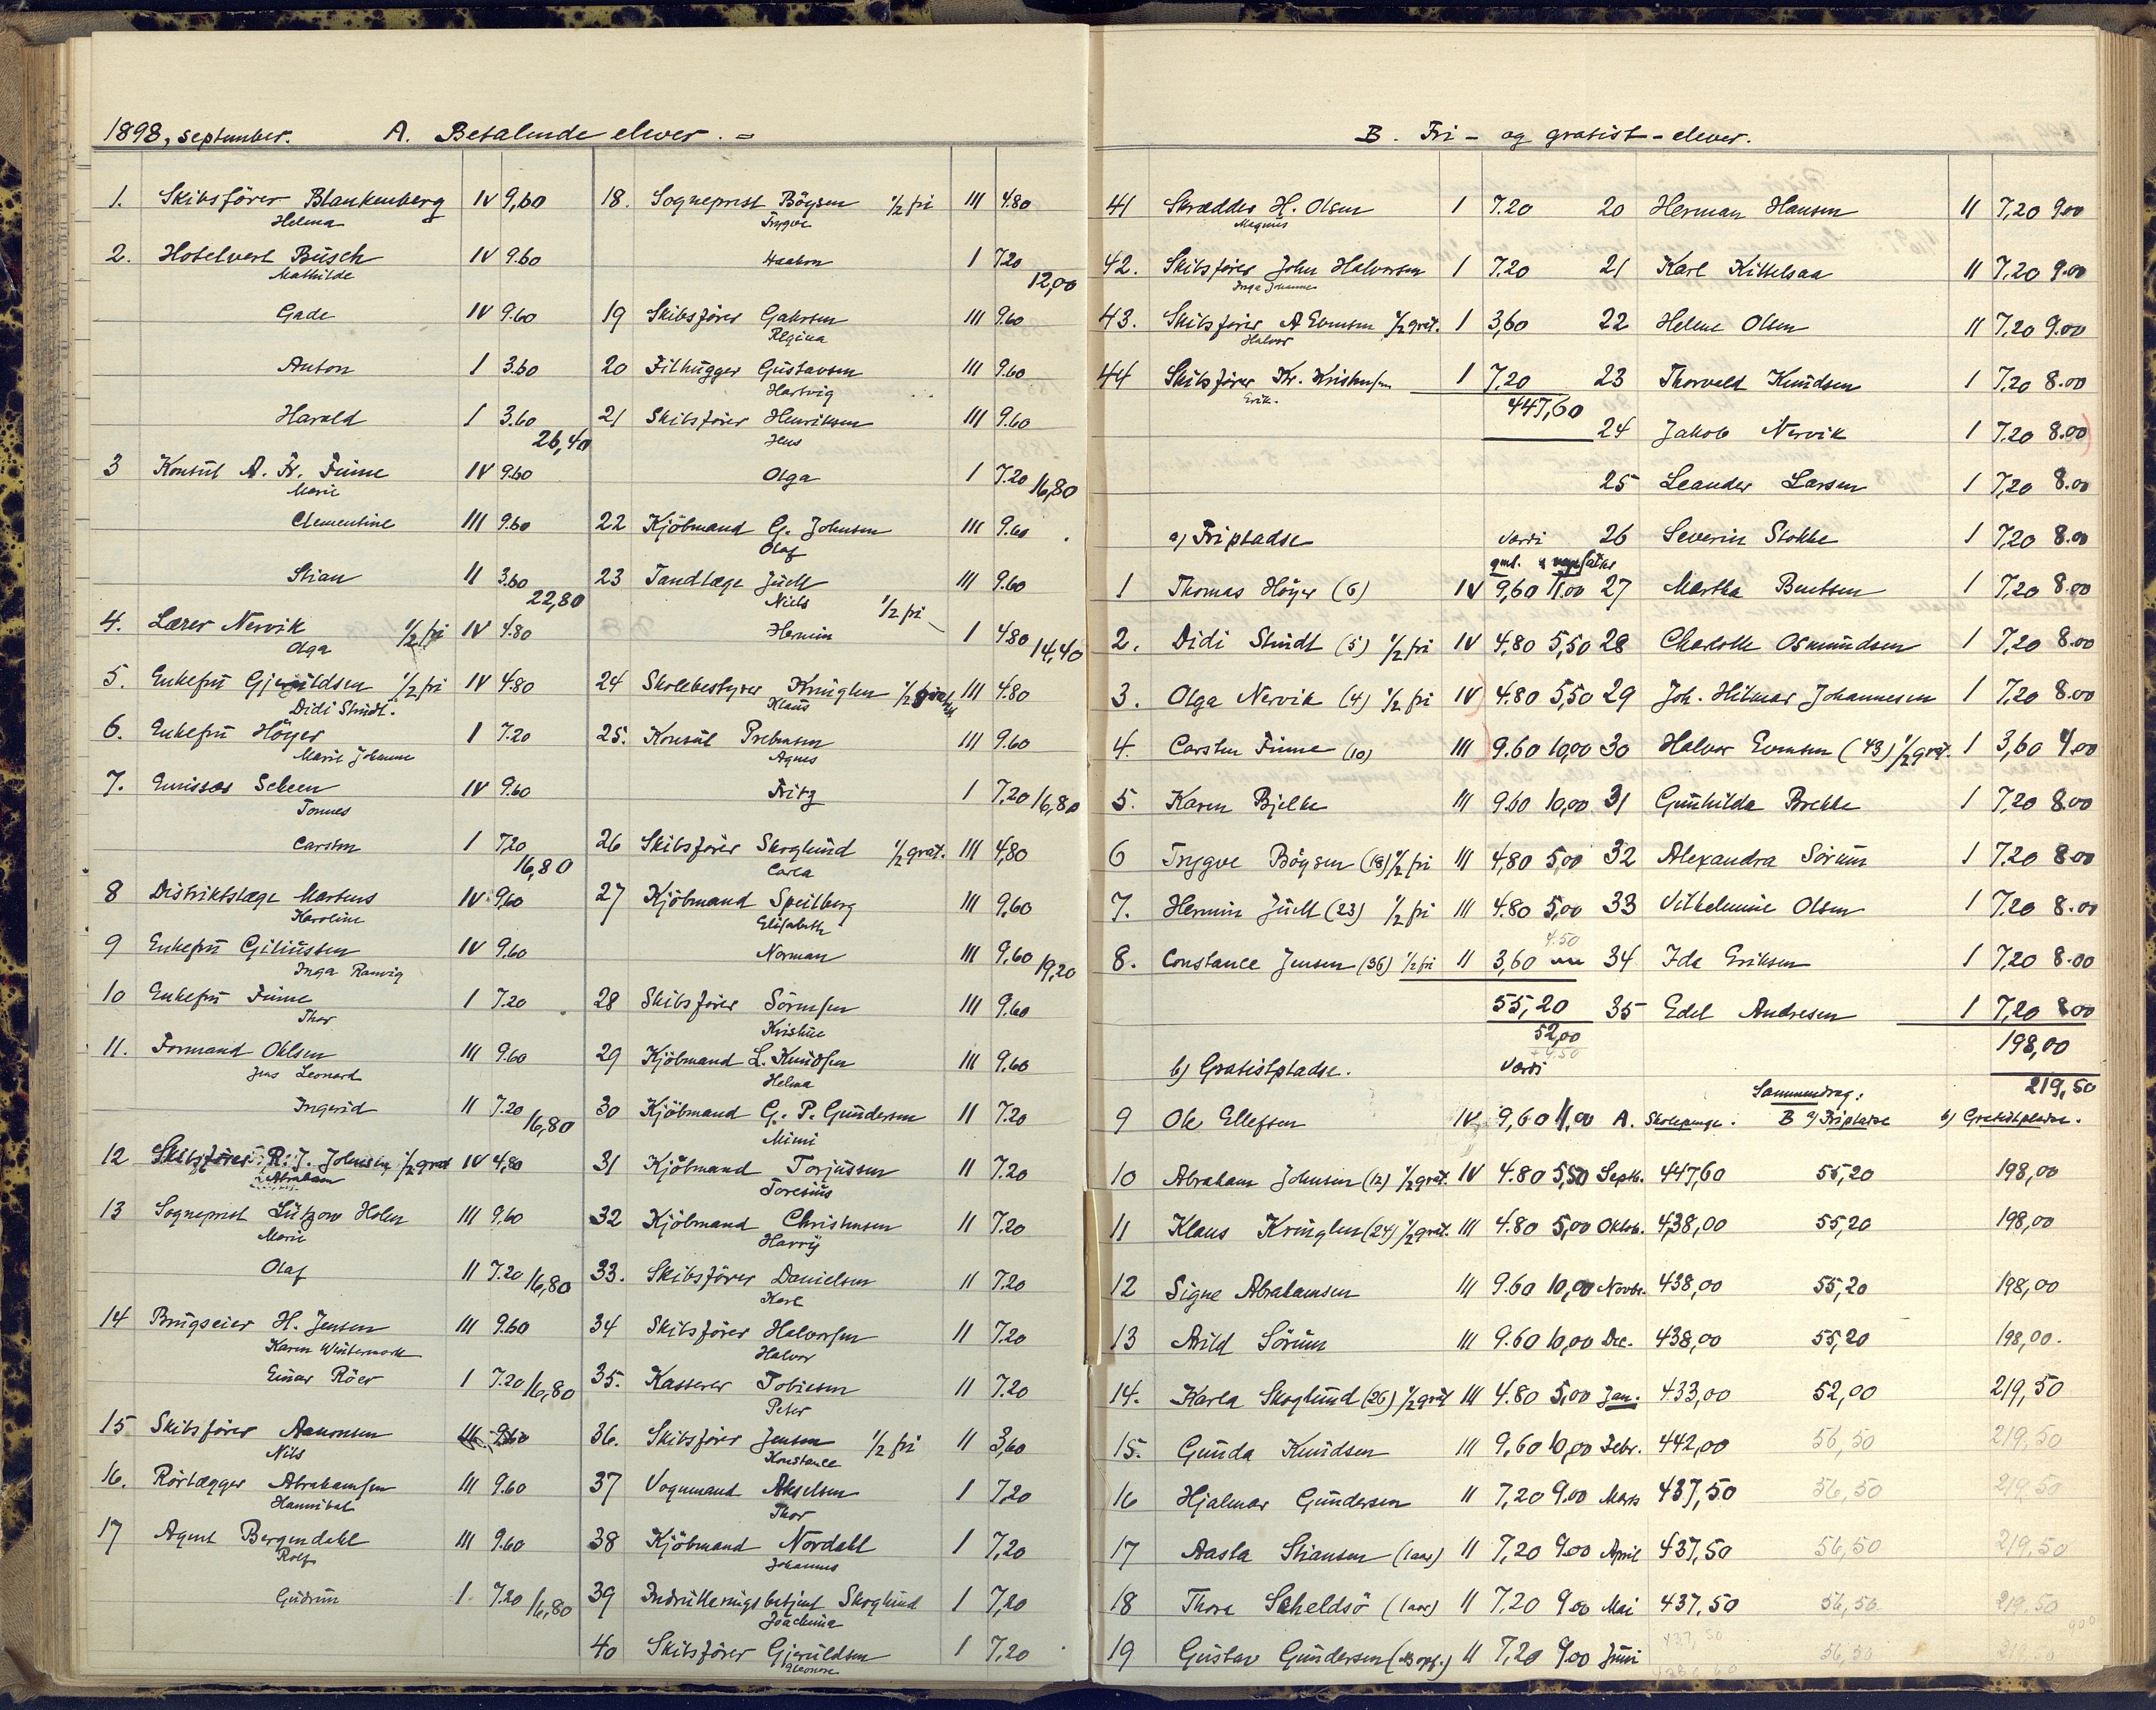 1898, september. A. Betalende elever. =
1. Skibsfører Blankenberg IV 9,60
Helma
2. Hotelvert Busch IV 9.60
Mathilde
Gade IV 9.60
Anton I 3.60
Harald I 3.60
26,40
3 Konsul A. Fr. Finne IV 9.60
Marie
Clementine III 9.60
Stian II 3.60
22,80
4. Lærer Nervik 1/2 fri IV 4.80
Olga
5. Enkefru Gjeruldsen 1/2 fri IV 4.80
Didi Stindt.
6. Enkefru Höyer I 7.20
Marie Johanne
7. Emissær Scheen IV 9.60
Tomes
Carsten I 7,20
16,80
8 Distriktslæge Martens IV 9,60
Karoline
9 Enkefru Giliussen IV 9.60
Inga Ranvig
10 Enkefru Finne I 7.20
Thor
11. Formand Ohlsen III 9.60
Jens Leonard
Ingerid II 7.20
16,80
12 Skibsfører R. J. Johnsen 1/2 grat IV 4,80
Abraham
13 Sogneprest Lützow Holm III 9,60
Marie
Olaf II 7.20 16,80
14 Brugseier H. Jensen III 9.60
Karen Wintermark
Einar Röer I 7.20 16,80
15 Skibsfører Aanonsen III 9.60
Nils
16. Rörlægger Abrahamsen III 9.60
Hannibal
17 Agent Bergendahl III 9.60
Rolf
Gudrun I 7.20 16,80
18. Sogneprest Böysen 1/2 fri III 4.80
Trygve
Haakon I 7.20
12,00
19 Skibsfører Gahrsen III 9.60
Regina
20 Filhugger Gustavsen III 9.60
Hartvig
21 Skibsfører Henriksen III 9.60
Jens
Olga I 7.20 16,80
22 Kjöbmand G. Johnsen III 9.60
Olaf
23 Tandlæge Juell III 9.60
Niels 1/2 fri
Hermin I 4.80 14,40
24 Skolebestyrer Kringlen 1/2 III 4.80
Klaus
25. Konsul Prebensen III 9.60
Agnes
Fritz I 7,20 16,80
26 Skibsfører Skoglund 1/2 grat. III 4,80
Carla
27 Kjöbmand Speilberg III 9,60
Elisabeth
Norman III 9,60 19,20
28 Skibsfører Sörensen III 9.60
Kristine
29 Kjöbmand L. Knudsen III 9,60
Helma
30 Kjöbmand G. P. Gundersen II 7.20
Mimi
31 Kjöbmand Torjussen II 7.20
Toresius
32 Kjöbmand Christensen II 7.20
Harry
33. Skibsfører Danielsen II 7.20
Karl
34 Skibsfører Halvorsen II 7.20
Halvor
35. Kasserer Tobiesen II 7.20
Peter
36. Skibsfører Jensen 1/2 fri II 3,60
Konstance
37 Vognmand Akselsen I 7,20
Thor
38 Kjöbmand Nordahl I 7,20
Johannes
39 Indrulleringsbetjent Skoglund I 7,20
Joachima
40 Skibsfører Gjeruldsen I 7,20
Eleonore
B. Fri- og gratist-elever.
41 Skrædder H. Olsen I 7.20
Magnus
42. Skibsfører John Halvorsen I 7.20
Inga Johanne
43. Skibsfører A Evensen 1/2 grat. I 3,60
Halvor
44 Skibsfører Kr. Kristensen I 7,20
Erik.
447,60
a) Fripladse Værdi
gml. nye satser
1 Thomas Höyer (6) IV 9,60 11.00
2. Didi Stindt (5) 1/2 fri IV 4.80 5,50
3. Olga Nervik (4) 1/2 fri IV 4.80 5,50
4. Carsten Finne (10) III 9.60 10,00
5. Karen Bjelke III 9.60 10,00
6 Trygve Böysen (18) 1/2 fri III 4,80 5,00
7. Hermin Juell (23) 1/2 fri III 4.80 5,00
4.50
8. Constance Jensen (36) 1/2 fri II 3,60
55,20
52,00
+ 4,50
b) Gratistpladse. Værdi
9 Ole Ellefsen IV 9,60 11,00
10 Abraham Johnsen (12) 1/2 grat. IV 4.80 5,50
11 Klaus Kringlen (24) 1/2 grat. III 4.80 5,00
12 Signe Abrahamsen III 9.60 10,00
13 Arild Sörum III 9.60 10,00
14. Karla Skoglund (26) 1/2 grat III 4.80 5,00
15. Gunda Knudsen III 9,60 10,00
16 Hjalmar Gundersen II 7,20 9.00
17 Aasta Stiansen (1 aar) II 7,20 9.00
18 Thora Scheldsö (1 aar) II 7.20 9.00
19 Gustav Gundersen II 7,20 9.00
20 Herman Hansen II 7,20 9.00
21 Karl Kittelsaa II 7,20 9.00
22 Helene Olsen II 7,20 9.00
23 Thorvald Knudsen I 7,20 8.00
24 Jakob Nervik I 7.20 8.00
25 Leander Larsen I 7,20 8.00
26 Severin Stokke I 7.20 8.00
27 Martha Bentsen I 7,20 8.00
28 Charlotte Osmundsen I 7,20 8.00
29 Joh. Hilmar Johannesen I 7,20 8.00
30 Halvor Evensen (43) 1/2 grat. I 3,60 4.00
31 Gunhilda Brekke I 7,20 8.00
32 Alexandra Sörum I 7.20 8.00
33 Vilhelmine Olsen I 7.20 8.00
34 Ida Eriksen I 7,20 8.00
35 Edel Andresen I 7,20 8.00
198,00
219,50
Sammendrag:
A. Skolepenge. B a) Fripladse b) Gratistpladse.
Septb. 447,60 55,20 198,00
Oktob. 438,00 55,20 198,00
Novbr. 438,00 55,20 198,00
Dec. 438,00 55,20 198,00.
Jan. 433,00 52,00 219,50
Febr. 442,00 56,50 219,50
Mars 437,50 56,50 219,50
April 437,50 56,50 219,50
Mai 437,50 56,50 219.50
Juni 437,50 56,50 219.50
900